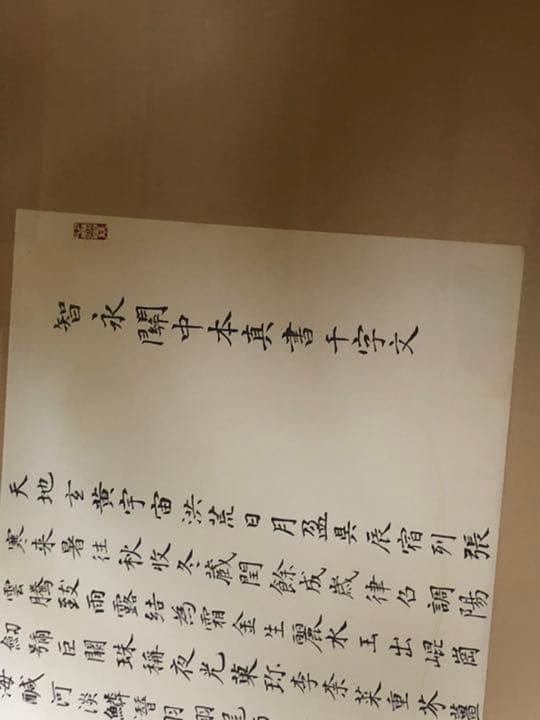 智永關中本真書千字文
天地玄黃宇宙洪荒日月盈昃辰宿列張
寒來暑往秋收冬藏閏餘成歲律召調陽
雲騰致雨露結為霜金生麗水玉出崐崗
劍號巨闕珠稱夜光菓珍李柰菜重芥薑
海鹹河淡鱗潛羽翔